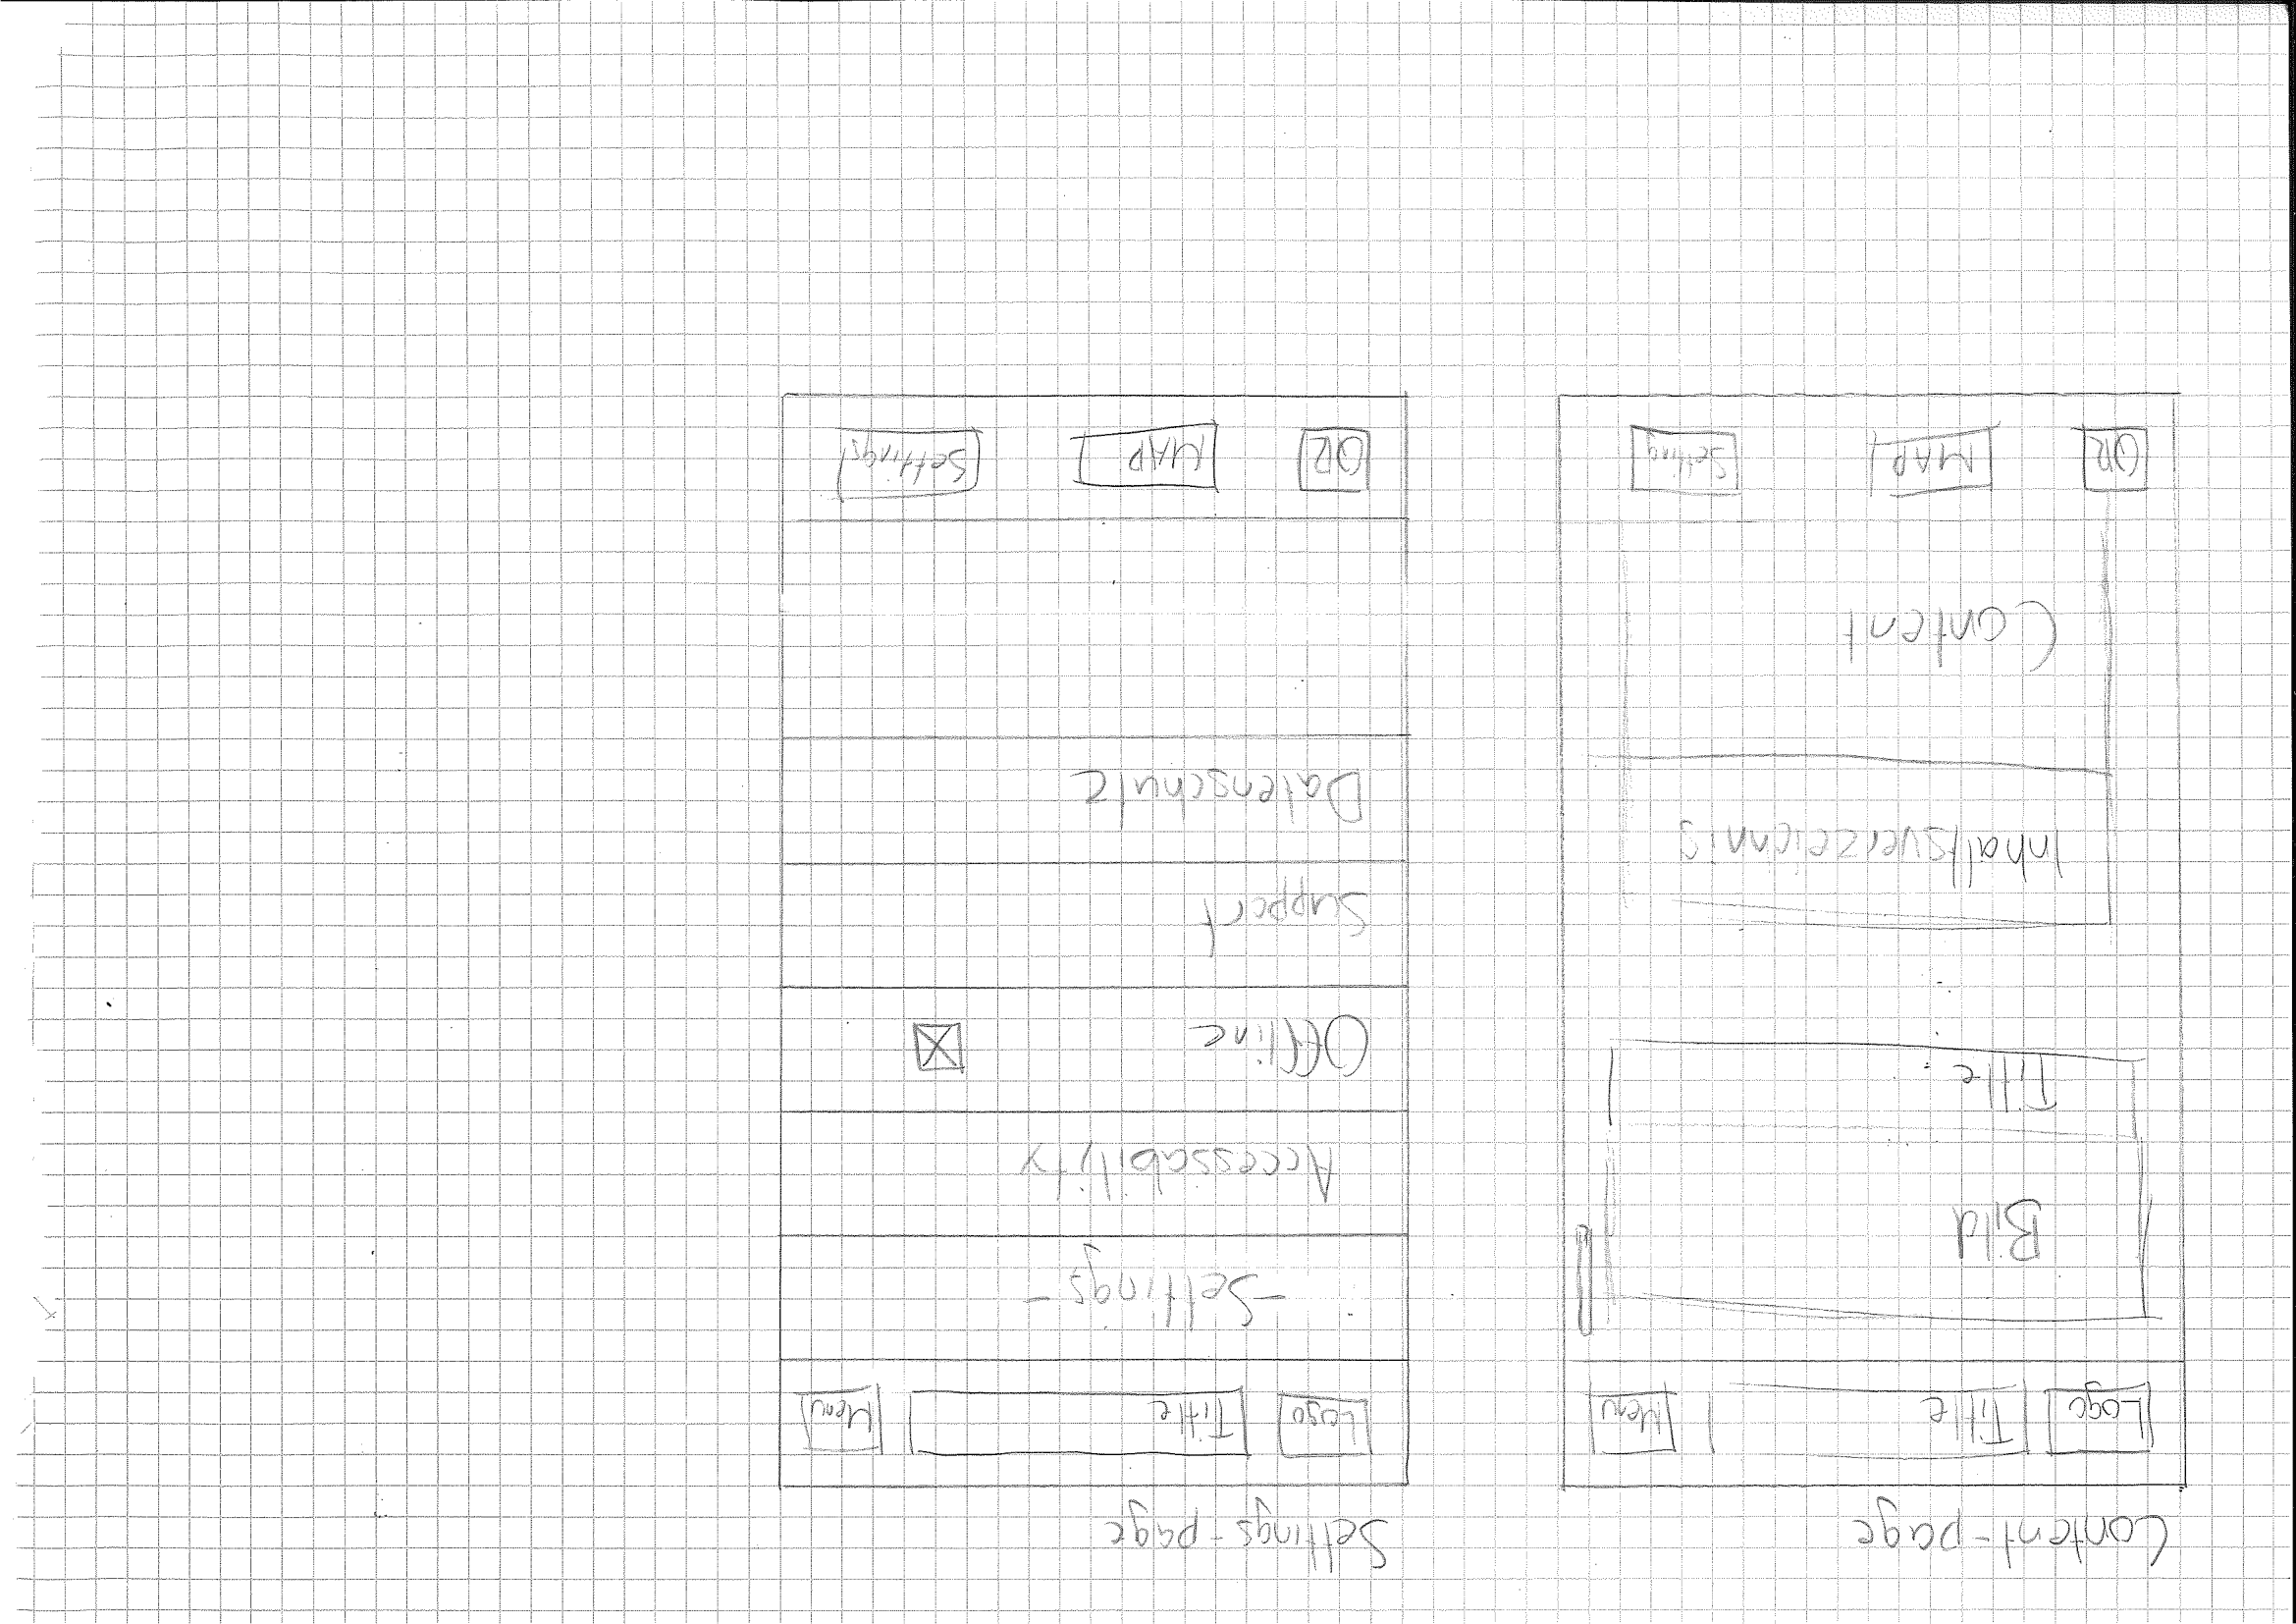 Content-page
Logo Title Menu
Bild
Title
Inhaltsverzeichnis
Content
QR MAP Setting
Settings-page
Logo Title Menu
-Settings-
Accessability
Offline
Support
Datenschutz
QR MAP Settings